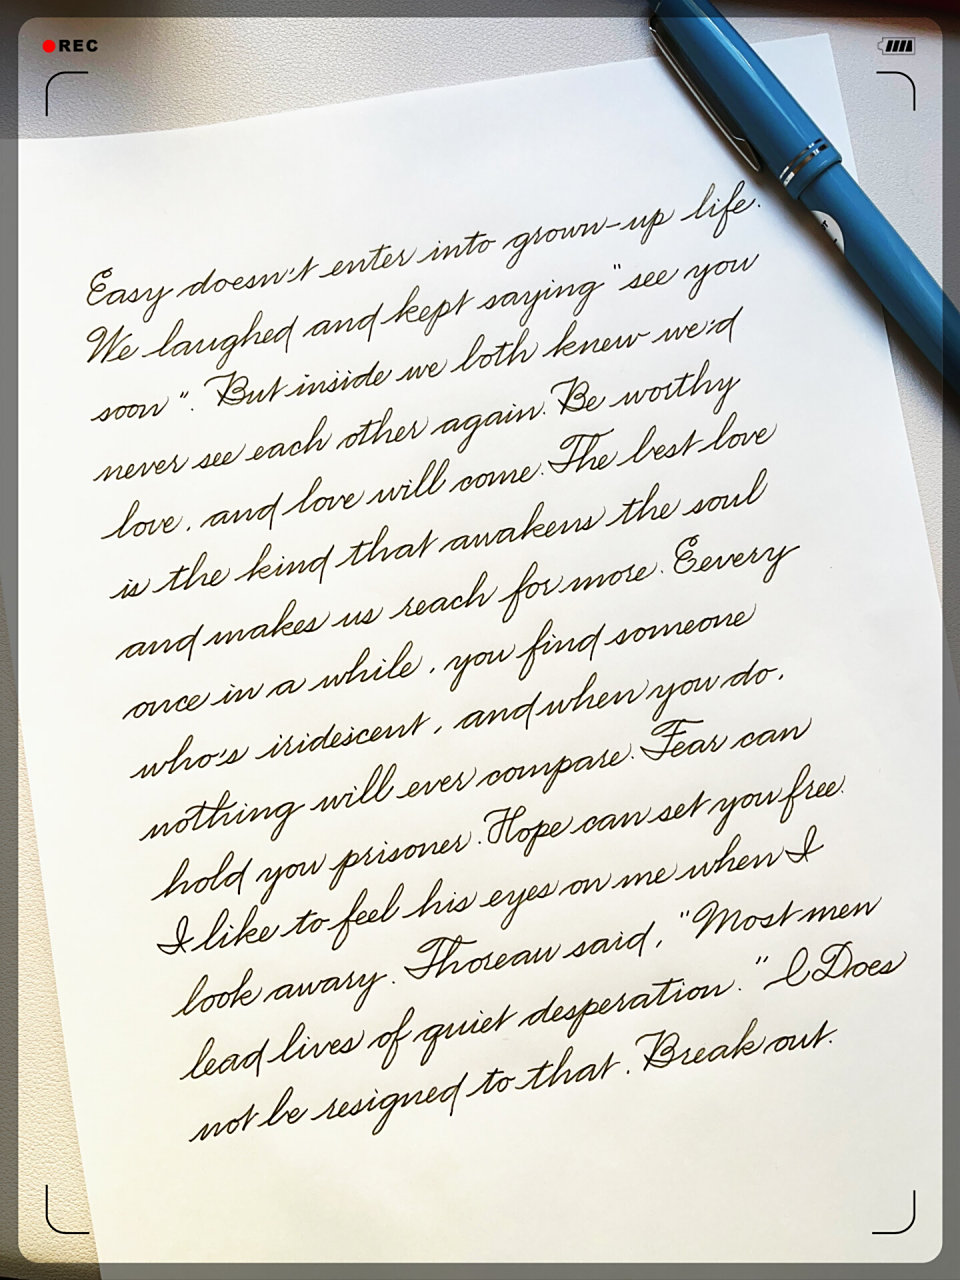 REC
Easy doesn't enter into grown-up life.
We laughed and kept saying "see you
soon". But inside we both knew we'd
never see each other again. Be worthy
love, and love will come. The best love
is the kind that awakens the soul
and makes us reach for more. Eevery
once in a while, you find someone
who's iridescent, and when you do,
nothing will ever compare. Fear can
hold you prisoner. Hope can set you free.
I like to feel his eyes on me when I
look awary. Thoreau said, "Most men
lead lives of quiet desperation." Does
not be resigned to that. Break out.